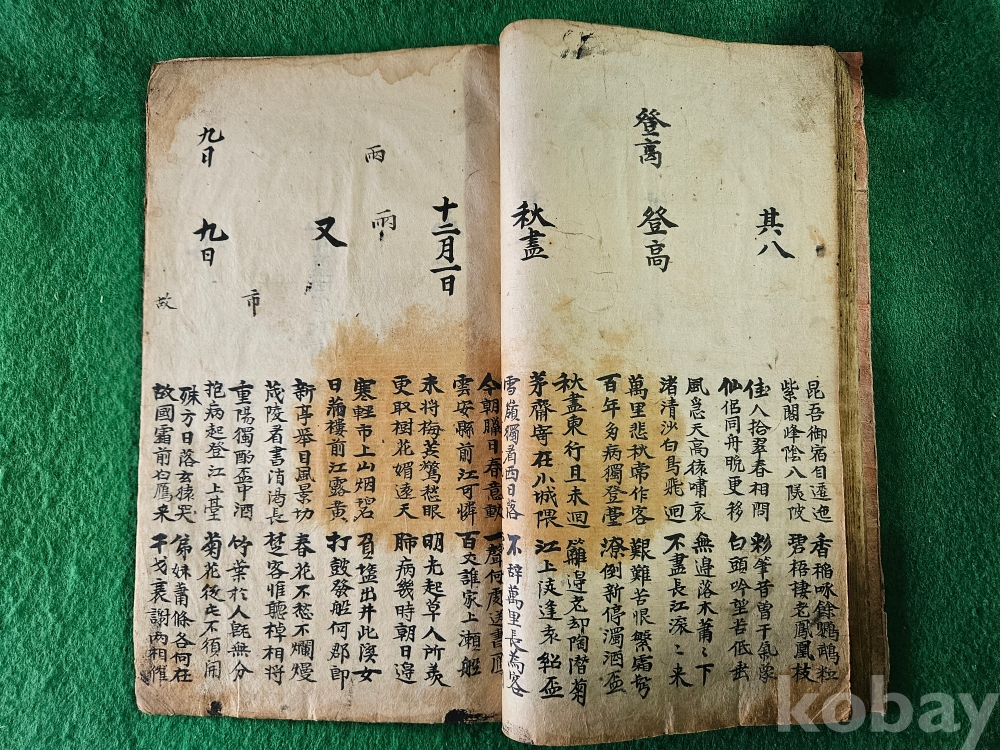 其八
登高
登高
秋盡
十二月一日
雨
雨
又
市
九日
九日
故
昆吾御宿自逶迤 香稲咏餘鸚鵡粒
紫閣峰陰入渼陂 碧梧棲老鳳凰枝
佳人拾翠春相問 彩筆昔曾干氣象
仙侶同舟晩更移 白頭吟望苦低垂
風急天高猿嘯哀 無邊落木蕭〻下
渚清沙白鳥飛迴 不盡長江滚〻来
萬里悲秋常作客 艱難苦恨繁霜鬂
百年多病獨登臺 潦倒新停濁酒盃
秋盡東行且未迴 籬邊老却陶潛菊
茅齋寄在小城隈 江上徒逢袁紹盃
雪嶺獨看西日落 不辭萬里長為客
今朝臘日春意動 一聲何處送書鴈
雲安縣前江可憐 百丈誰家上瀨船
未将梅蕊驚愁眼 明光起草人所羡
更取椒花媚遠天 肺病幾時朝日邊
寒輕市上山烟碧 負塩出井此溪女
日滿樓前江霧黃 打鼓發船何郡郎
新亭舉目風景切 春花不愁不爛熳
茂陵著書消渴長 楚客惟聽棹相将
重陽獨酌盃中酒 竹葉於人旣無分
抱病起登江上臺 菊花從此不須開
殊方日落玄猿哭 弟妹蕭條各何在
故國霜前白鴈来 干戈衰謝兩相催
kobay